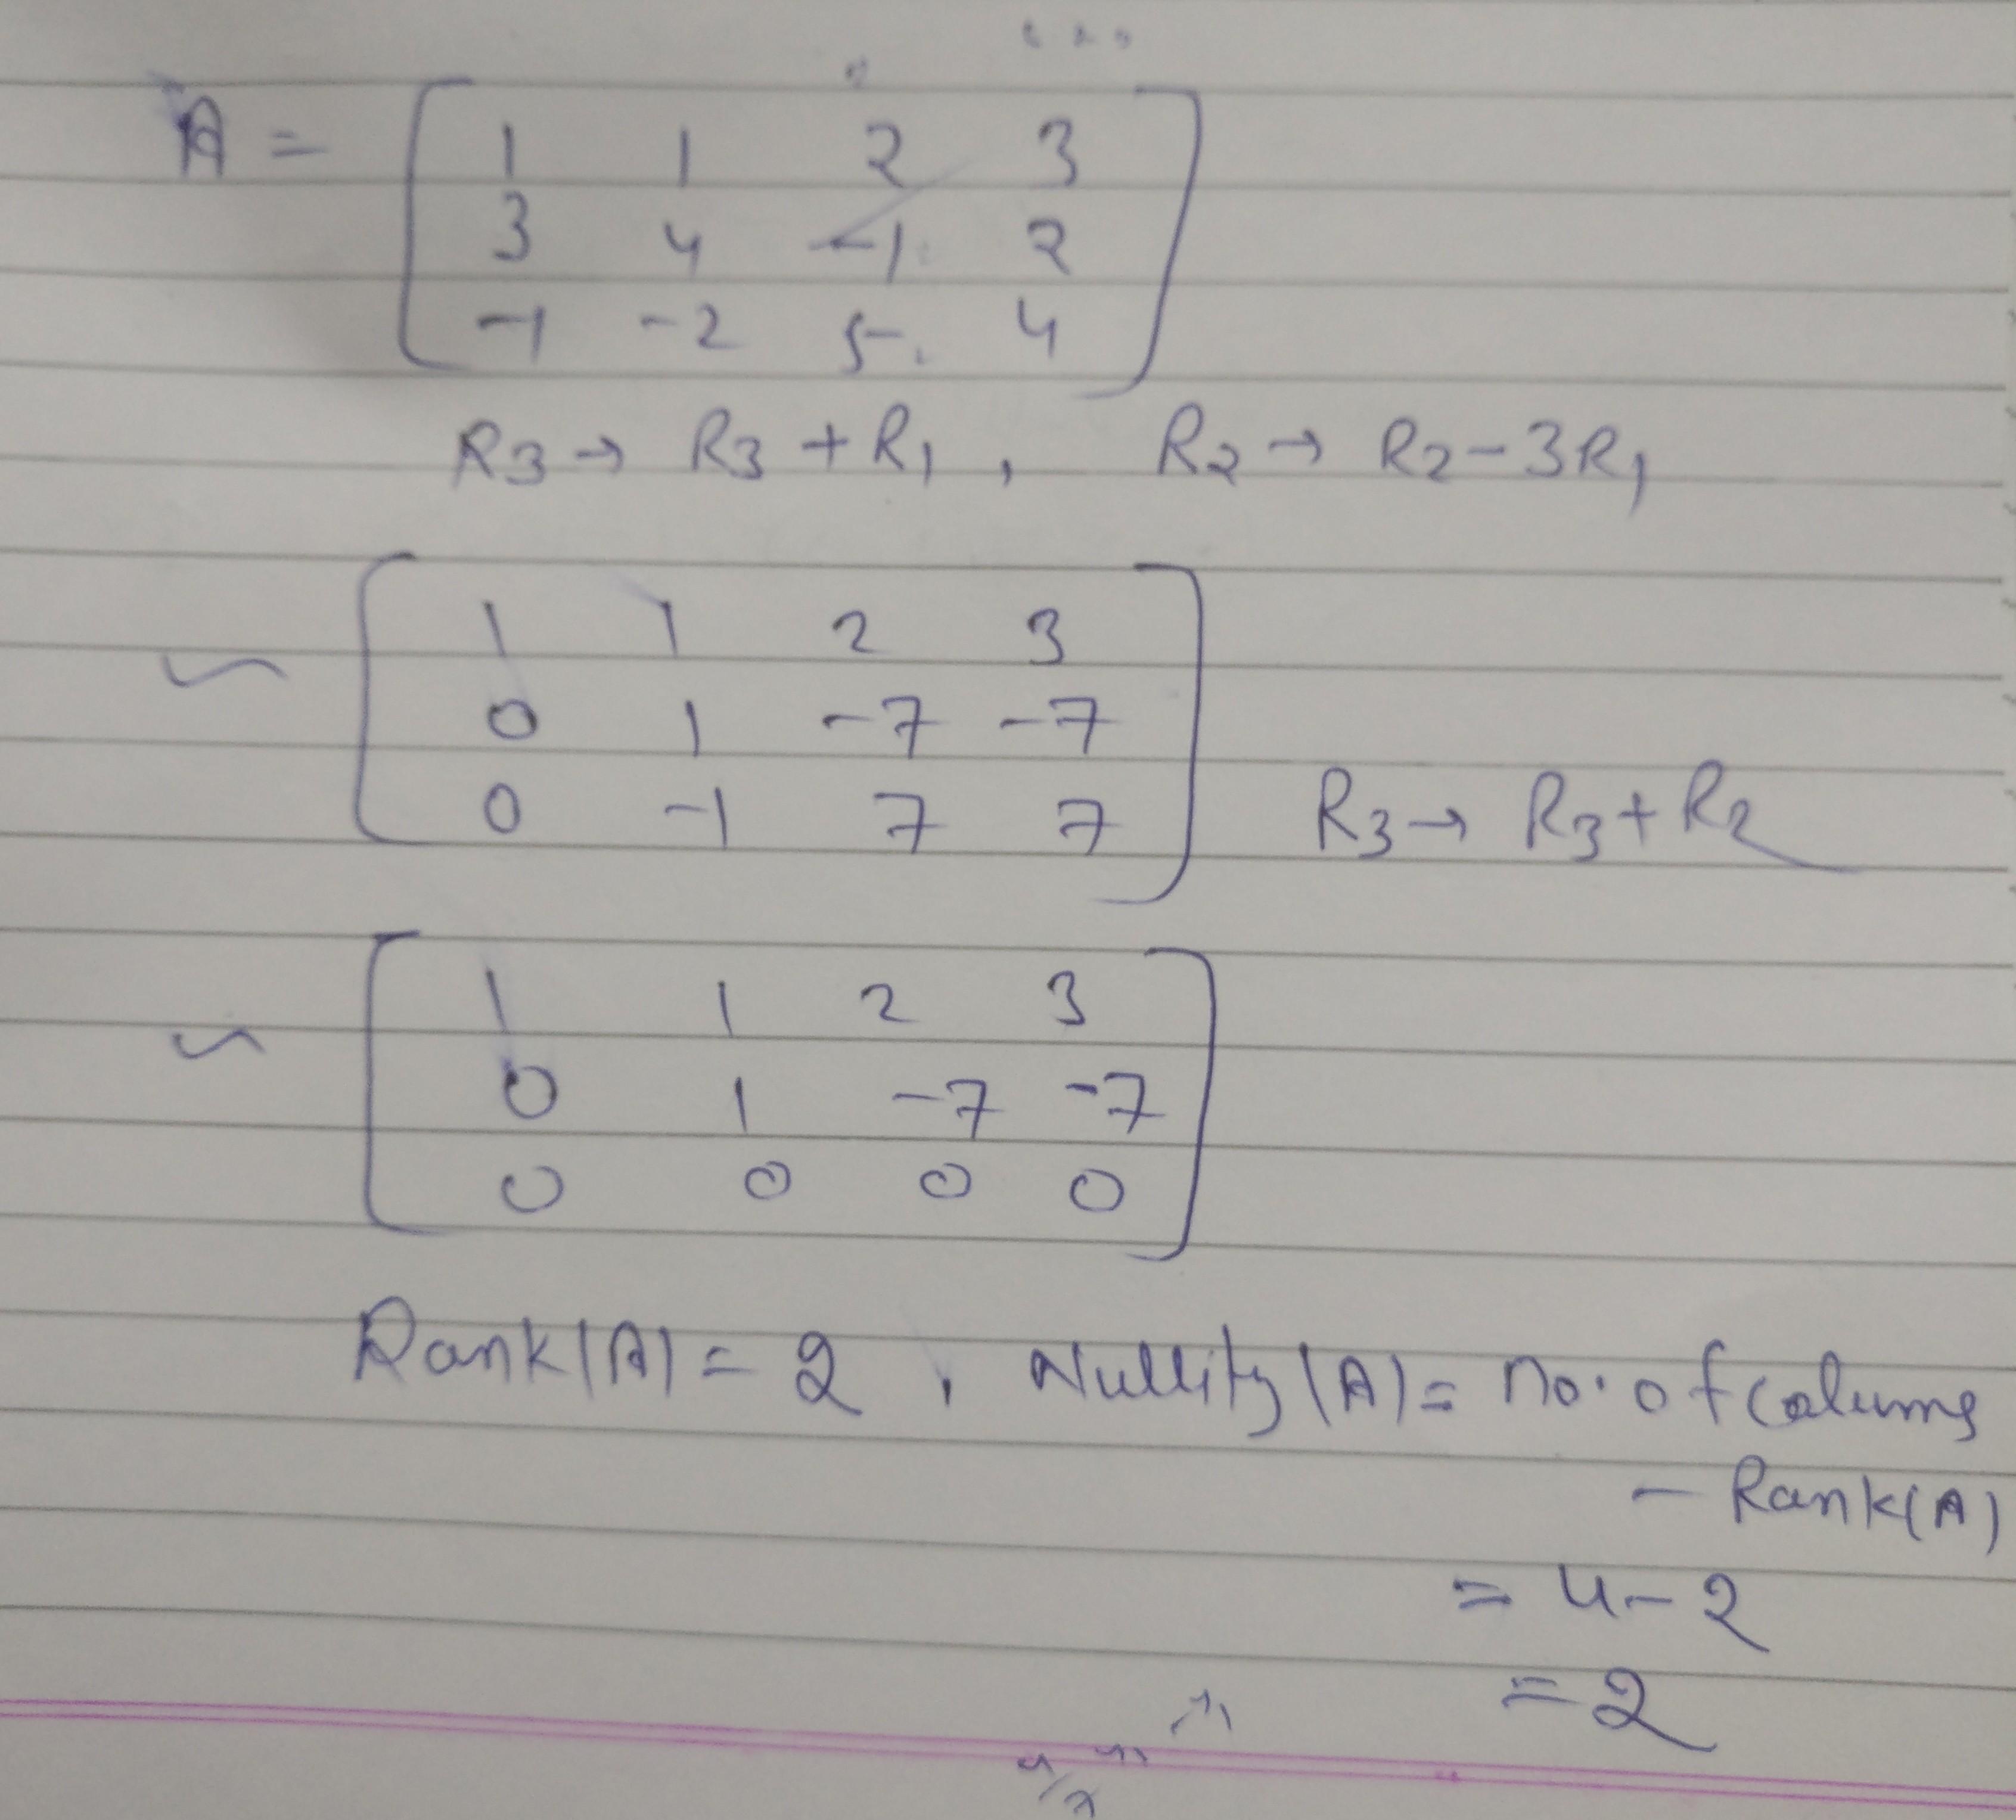 A = [ 1 1 2 3
3 4 -1 2
-1 -2 5 4 ]
R3 → R3 + R1 , R2 → R2 - 3R1
~ [ 1 1 2 3
0 1 -7 -7
0 -1 7 7 ] R3 → R3 + R2
~ [ 1 1 2 3
0 1 -7 -7
0 0 0 0 ]
Rank(A) = 2 , Nullity(A) = no. of colums
- Rank(A)
= 4 - 2
= 2